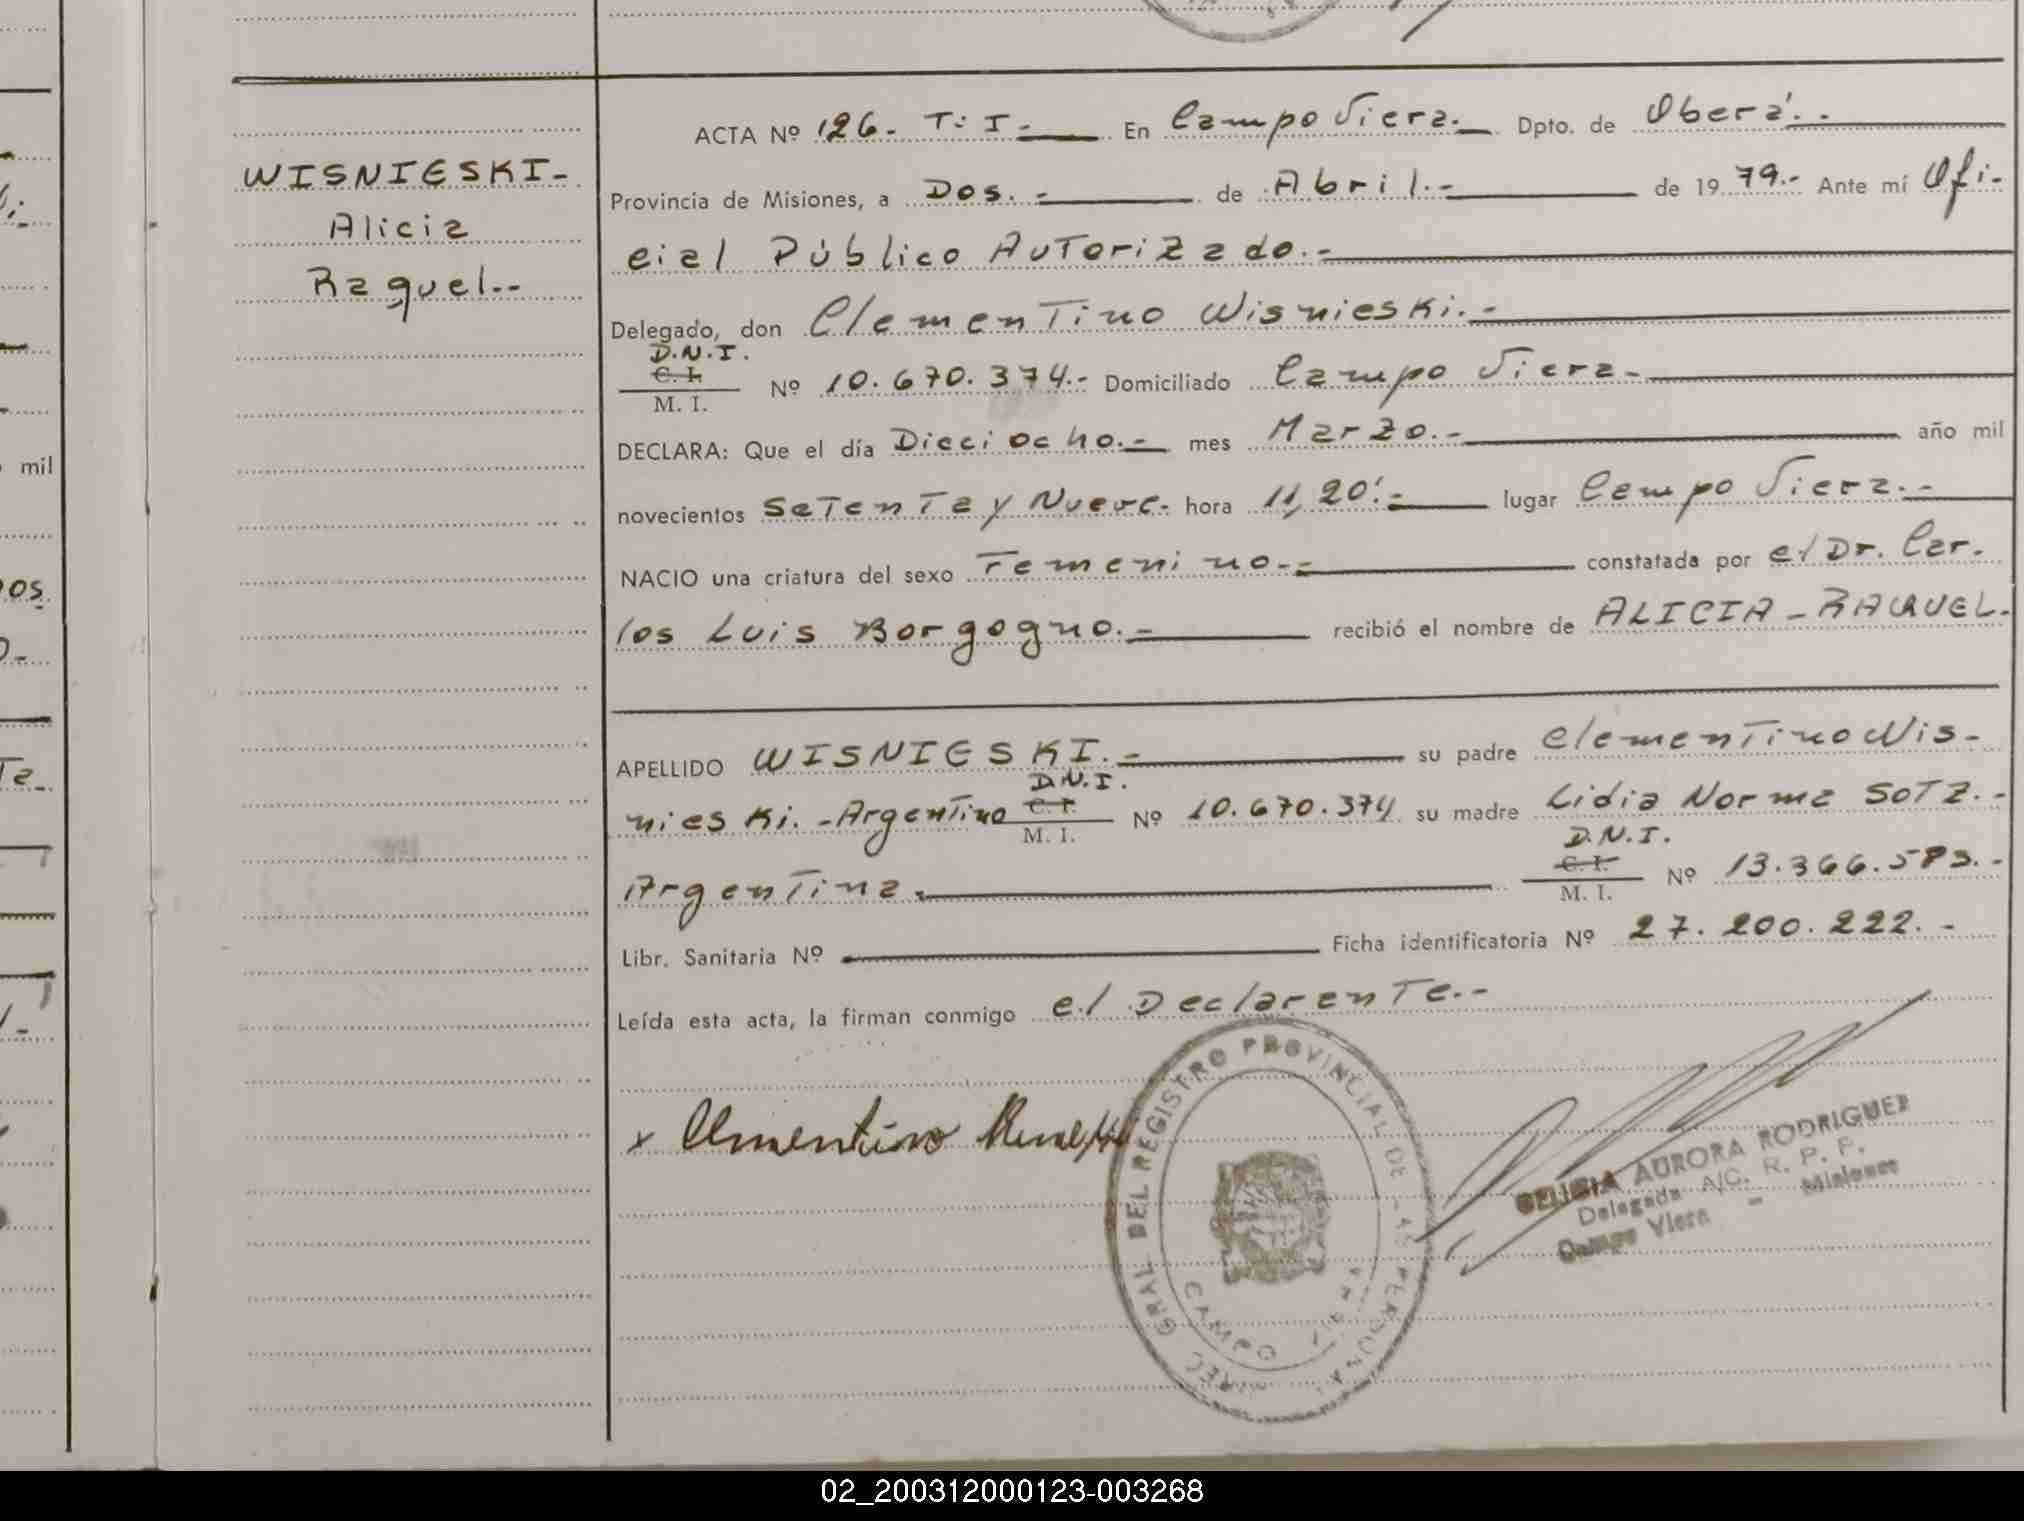 ACTA Nº 126. T: I - En Campo Viera. Dpto. de Oberá.
WISNIESKI-
Alicia
Raquel.-
Provincia de Misiones, a Dos.- de Abril.- de 1979.- Ante mí Ofi-
cial Público Autorizado.-
Delegado, don Clementino Wisnieski.-
D.N.I.
C. I.
M. I.
Nº 10.670.374.- Domiciliado Campo Viera-
DECLARA: Que el día Dieciocho.- mes Marzo.- año mil
novecientos Setenta y Nueve- hora 11,20'.- lugar Campo Viera.-
NACIO una criatura del sexo Femenino.- constatada por el Dr. Car.
los Luis Borgogno.- recibió el nombre de ALICIA-RAQUEL-
APELLIDO WISNIESKI.- su padre Clementino Wis-
D.N.I.
nieski.-Argentino C. I. Nº 10.670.374 su madre Lidia Norma SOTZ.-
M. I.
D.N.I.
Argentina. C. I. Nº 13.366.
M. I.
Libr. Sanitaria Nº Ficha identificatoria Nº 27.200.222.-
Leída esta acta, la firman conmigo el Declarente.-
x Clementino
GRAL DEL REGISTRO PROVINCIAL DE
CAMPO VIERA
AURORA RODRIGUEZ
Delegada A/C. R. P. P.
Campo Viera - Misiones
mil
02_200312000123-003268